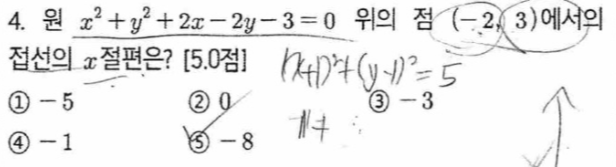 4. 원 x²+y²+2x-2y-3=0 위의 점 (-2, 3)에서의
접선의 x절편은? [5.0점]
(x+1)²+(y-1)²=5
① -5 ② 0 ③ -3
④ -1 ⑤ -8